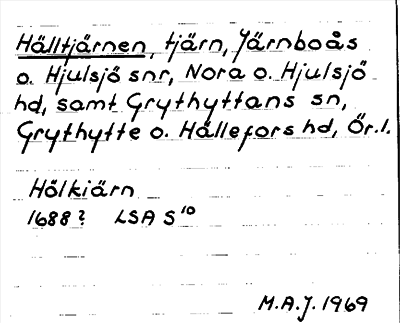 Hälltjärnen, tjärn, Järnboås
o. Hjulsjö snr, Nora o. Hjulsjö
hd, samt Grythyttans sn,
Grythytte o. Hällefors hd, Ör.l.
Hölkiärn
1688? LSA S¹⁰
M.A.J. 1969